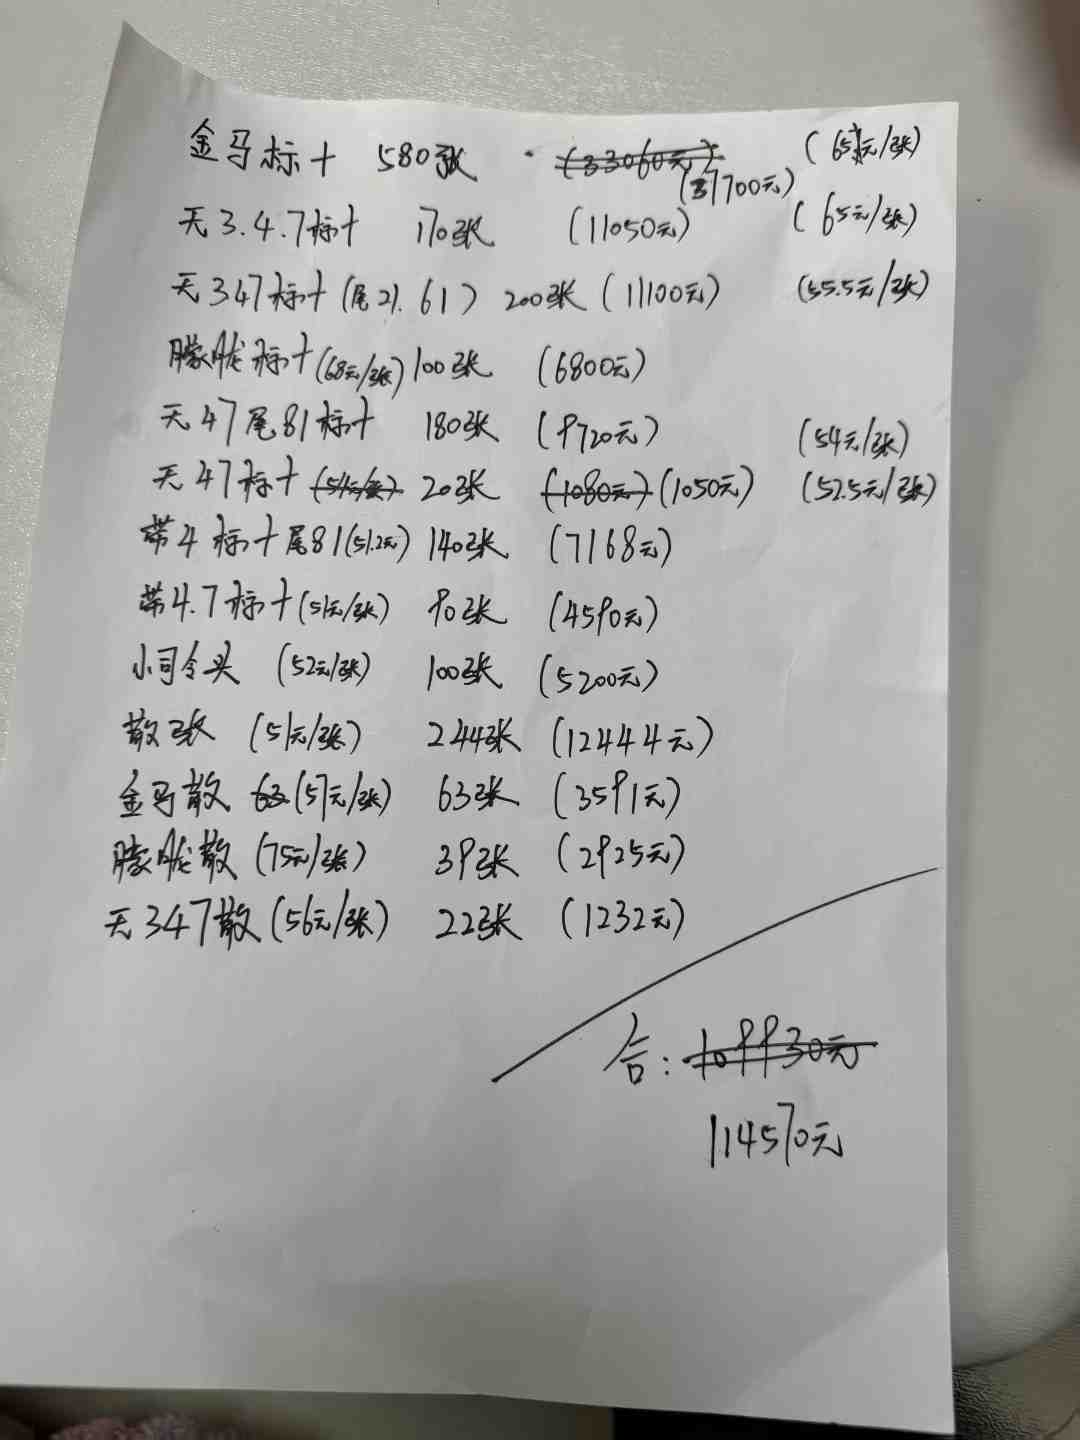 金马标十 580张 (33060元) (65元/张)
(37700元)
无3.4.7标十 170张 (11050元) (65元/张)
无347标十(尾21.61) 200张 (11100元) (55.5元/张)
朦胧标十(68元/张) 100张 (6800元)
无47尾81标十 180张 (9720元) (54元/张)
无47标十(54元/张) 20张 (1080元)(1050元) (52.5元/张)
带4标十尾81(51.2元) 140张 (7168元)
带4.7标十(51元/张) 90张 (4590元)
小司令头 (52元/张) 100张 (5200元)
散张 (51元/张) 244张 (12444元)
金马散 63(57元/张) 63张 (3591元)
朦胧散(75元/张) 39张 (2925元)
无347散(56元/张) 22张 (1232元)
合:109930元
114570元